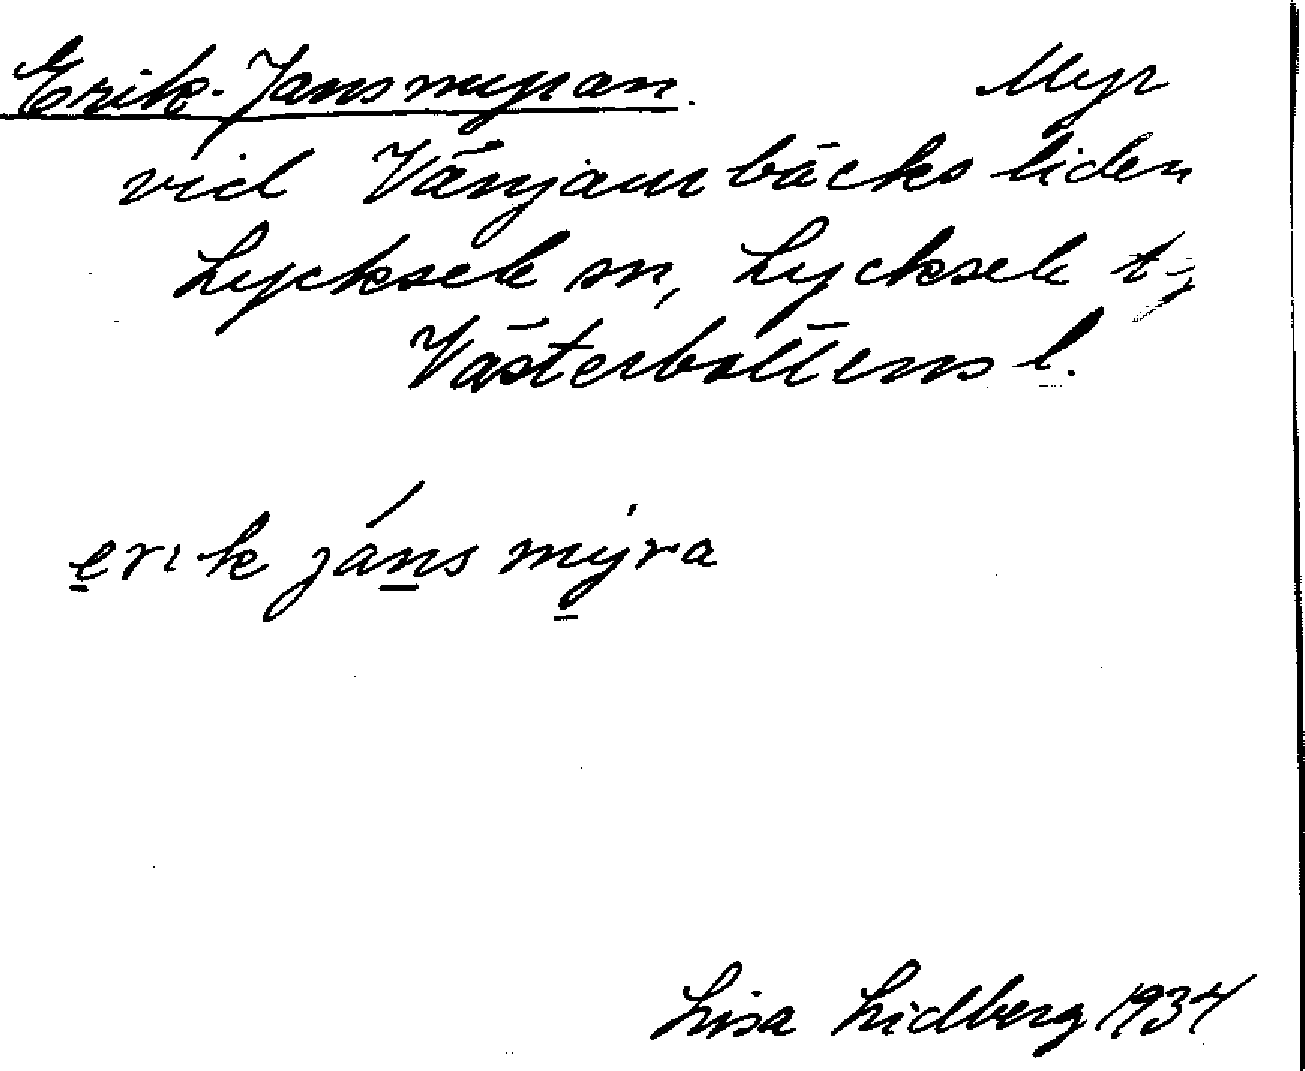 Erik-Jansmyran. Myr
vid Vänjaurbäcksliden
Lycksele sn, Lycksele t-g
Västerbottens l.
erik jáns mýra
Lisa Lidberg 1934